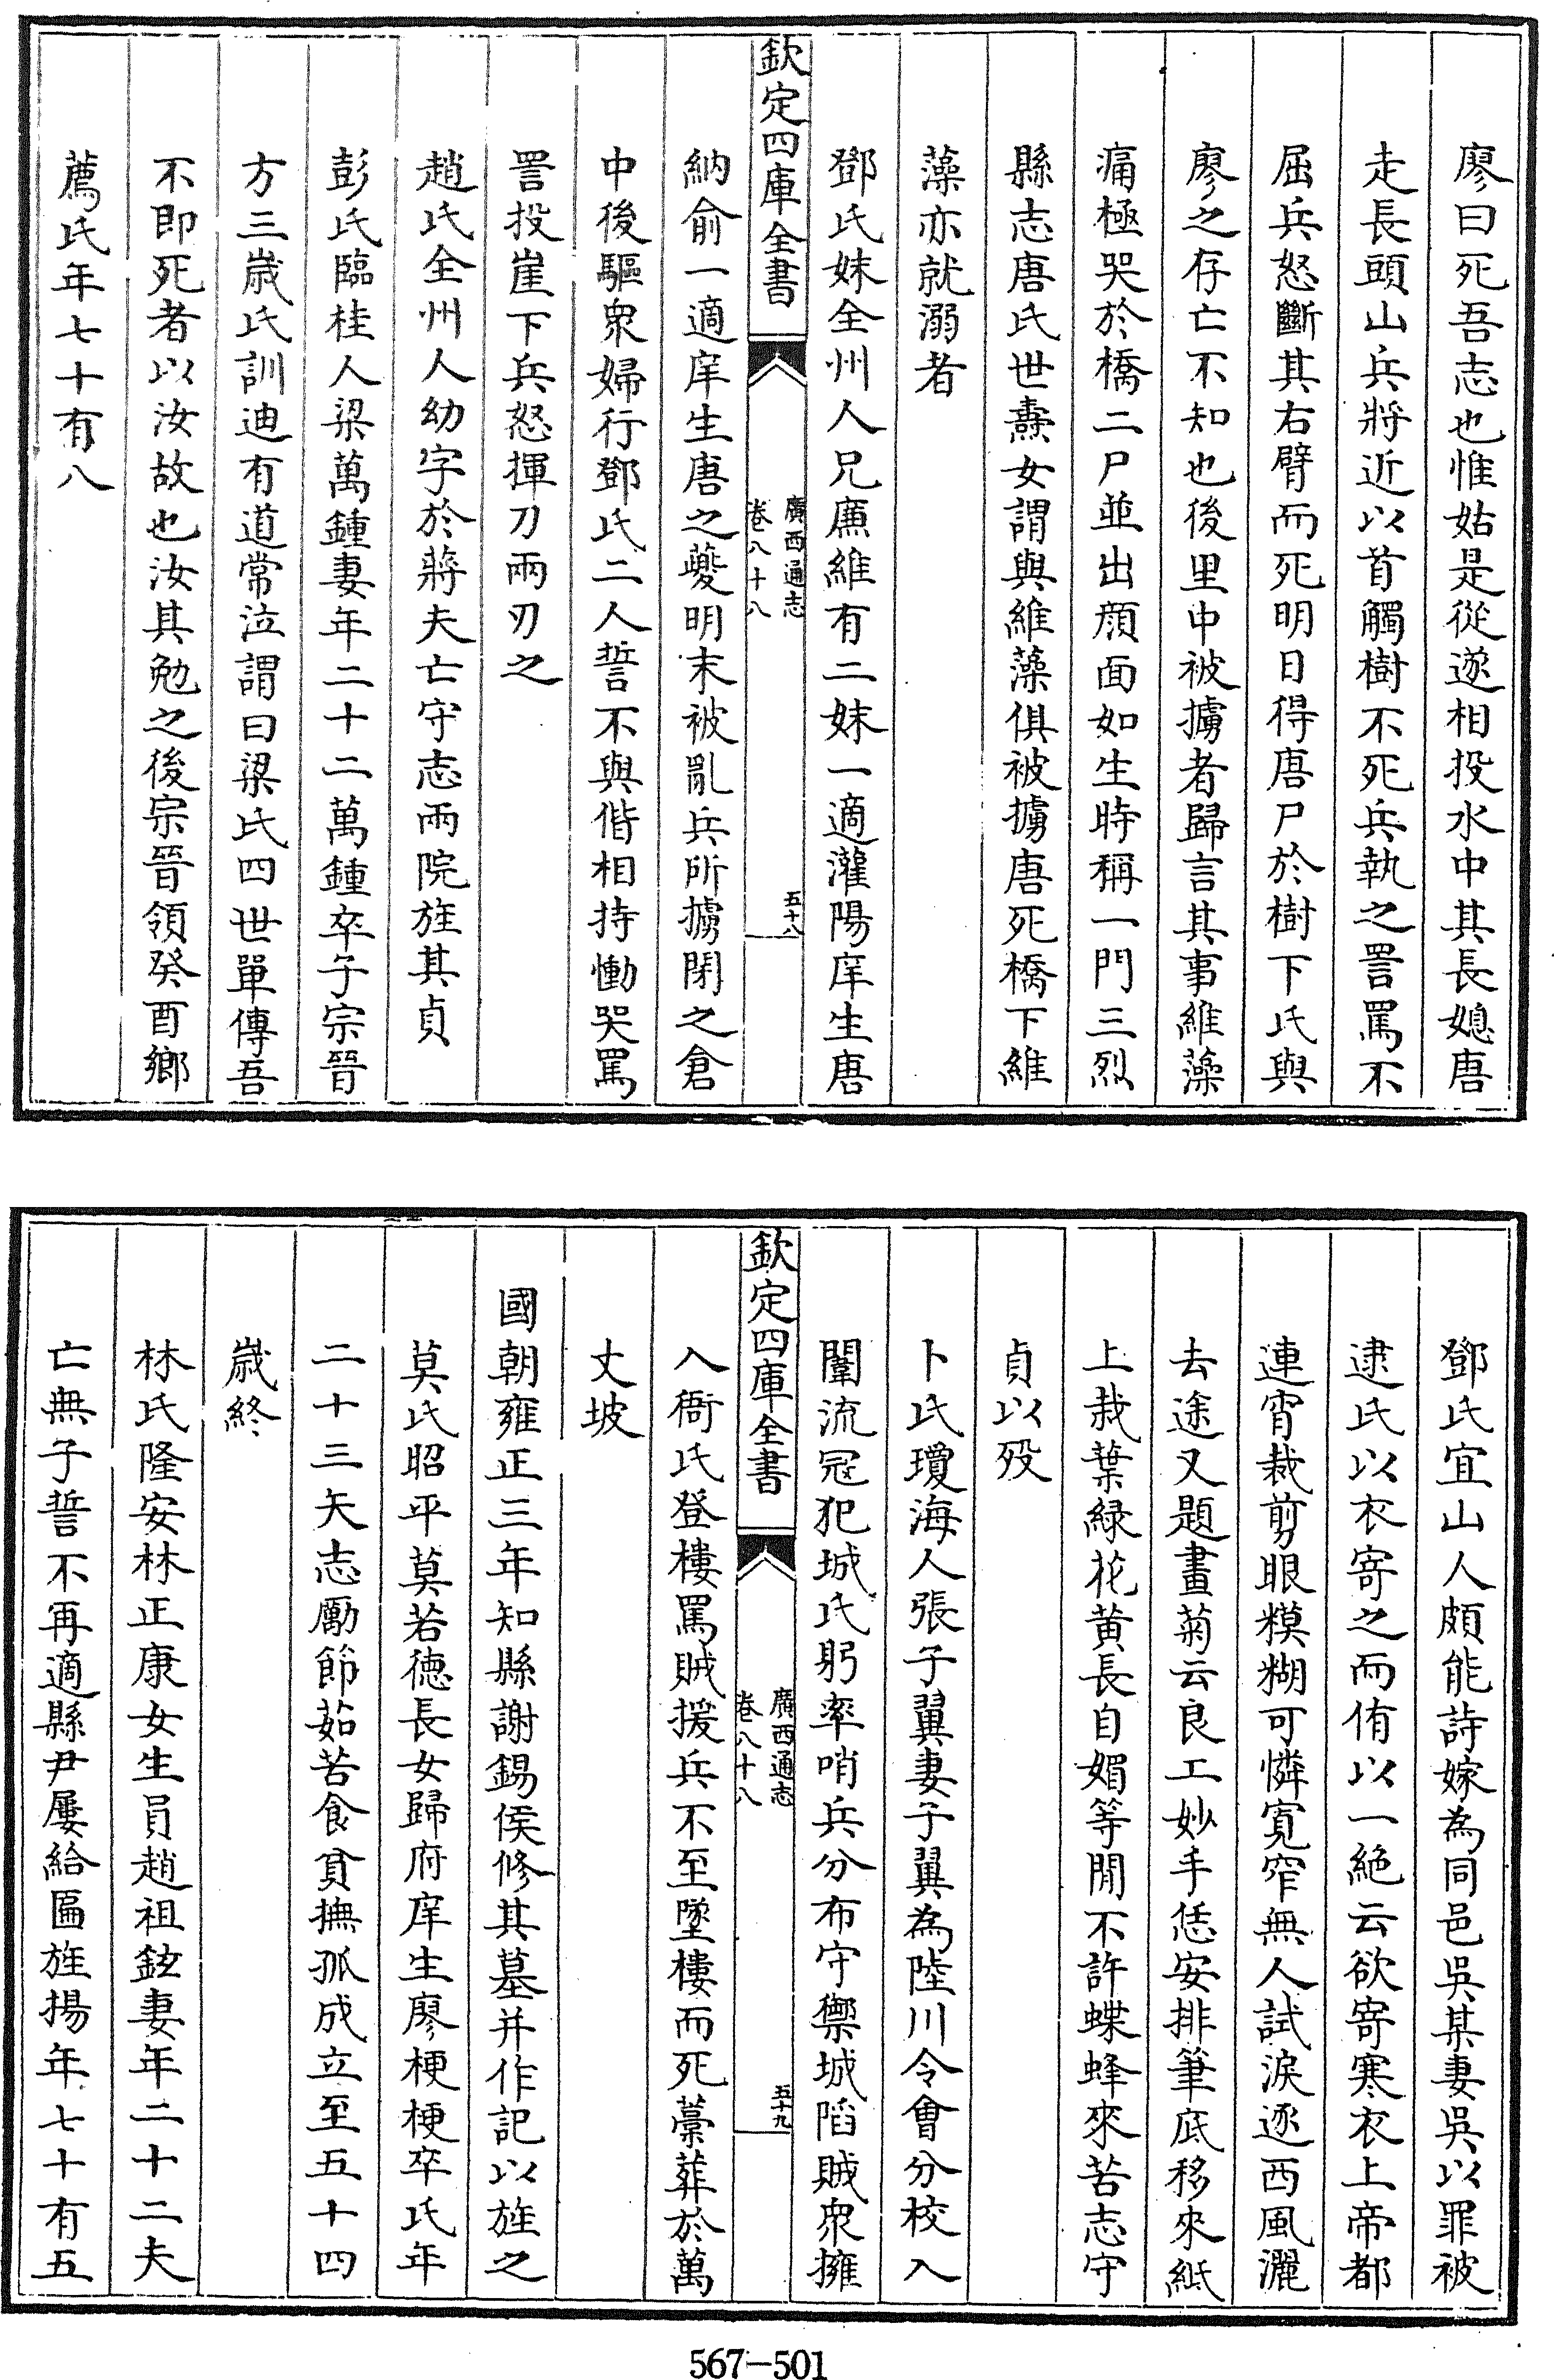 廖曰死吾志也惟姑是從遂相投水中其長媳唐
走長頭山兵將近以首觸樹不死兵執之詈罵不
屈兵怒斷其右臂而死明日得唐尸於樹下氏與
廖之存亡不知也後里中被擄者歸言其事維藻
痛極哭於橋二尸並出顔面如生時稱一門三烈
縣志唐氏世燾女謂與維藻俱被擄唐死橋下維
藻亦就溺者
鄧氏妹全州人兄廌維有二妹一適灌陽庠生唐
欽定四庫全書
廣西通志
卷八十八
五十八
納俞一適庠生唐之夔明末被亂兵所擄閉之倉
中後驅衆婦行鄧氏二人誓不與偕相持慟哭罵
詈投崖下兵怒揮刀兩刃之
趙氏全州人幼字於蔣夫亡守志兩院旌其貞
彭氏臨桂人梁萬鍾妻年二十二萬鍾卒子宗晉
方三歲氏訓迪有道常泣謂曰梁氏四世單傳吾
不即死者以汝故也汝其勉之後宗晉領癸酉鄉
薦氏年七十有八
鄧氏宜山人頗能詩嫁為同邑吳某妻吳以罪被
逮氏以衣寄之而侑以一絶云欲寄寒衣上帝都
連宵裁剪眼糢糊可憐寛窄無人試淚逐西風灑
去途又題畫菊云良工妙手恁安排筆底移來紙
上栽葉緑花黄長自媚等閒不許蝶蜂來苦志守
貞以歿
卜氏瓊海人張子翼妻子翼為陸川令會分校入
闈流冦犯城氏躬率哨兵分布守禦城陷賊衆擁
欽定四庫全書
廣西通志
卷八十八
五十九
入衙氏登樓罵賊援兵不至墜樓而死藁葬於萬
丈坡
國朝雍正三年知縣謝錫侯修其墓并作記以旌之
莫氏昭平莫若德長女歸府庠生廖梗梗卒氏年
二十三矢志勵節茹苦食貧撫孤成立至五十四
歲終
林氏隆安林正康女生員趙祖鉉妻年二十二夫
亡無子誓不再適縣尹屢給匾旌揚年七十有五
567—501